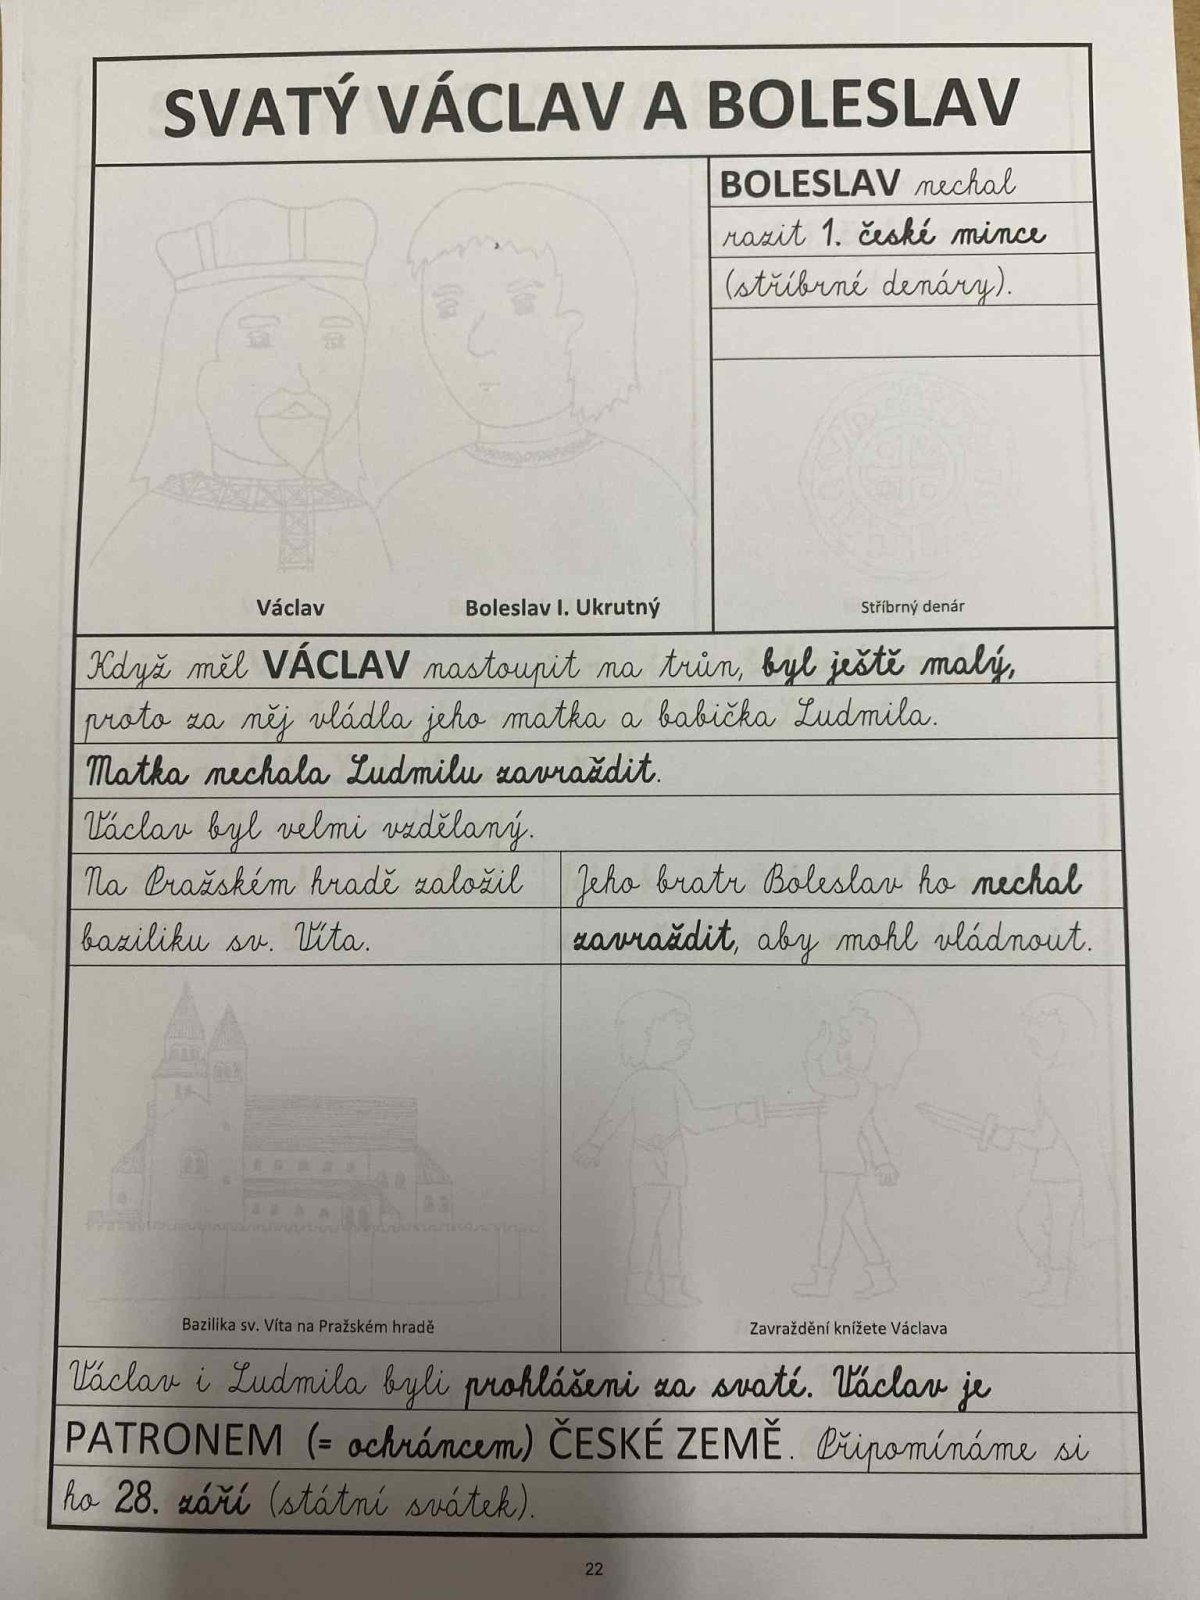 SVATÝ VÁCLAV A BOLESLAV
BOLESLAV nechal
razit 1. české mince
(stříbrné denáry).
Václav
Boleslav I. Ukrutný
Stříbrný denár
Když měl VÁCLAV nastoupit na trůn, byl ještě malý,
proto za něj vládla jeho matka a babička Ludmila.
Matka nechala Ludmilu zavraždit.
Václav byl velmi vzdělaný.
Na Pražském hradě založil
baziliku sv. Víta.
Jeho bratr Boleslav ho nechal
zavraždit, aby mohl vládnout.
Bazilika sv. Víta na Pražském hradě
Zavraždění knížete Václava
Václav i Ludmila byli prohlášeni za svaté. Václav je
PATRONEM (= ochráncem) ČESKÉ ZEMĚ. Připomínáme si
ho 28. září (státní svátek).
22